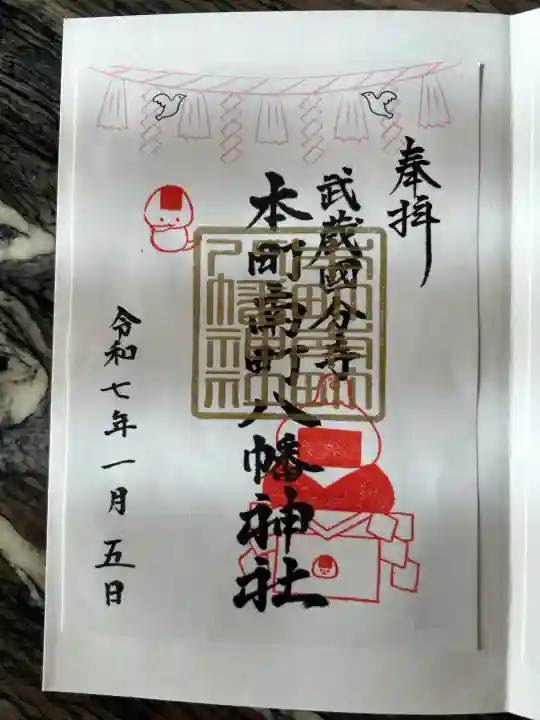 奉拝
武蔵國分寺
本町南町八幡神社
令和七年一月五日